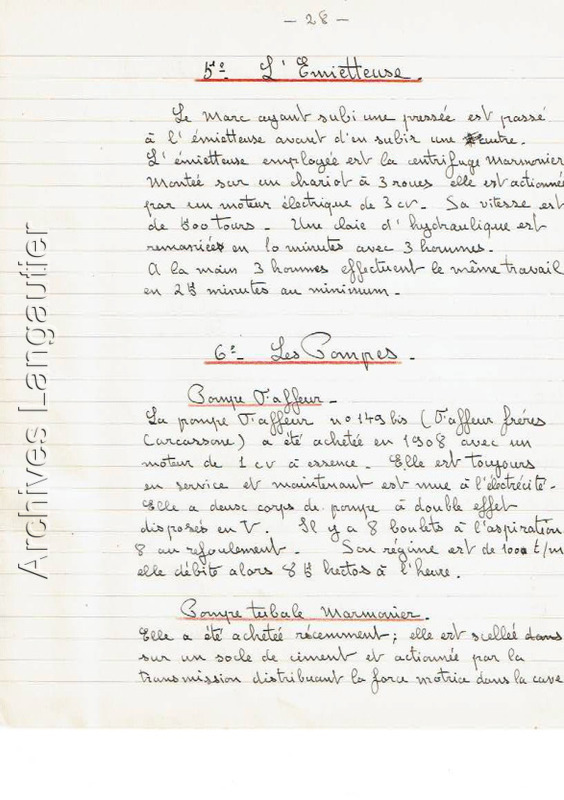 - 28 -
5º- L'Emietteuse.
Le Marc ayant subi une pressée est passé
à l'émietteuse avant d'en subir une autre.
L'émietteuse employée est la centrifuge Marmonier
Montée sur un chariot à 3 roues elle est actionnée
par un moteur électrique de 3 cv. Sa vitesse est
de 500 tours. Une claie d'hydraulique est
remaniée en 10 minutes avec 3 hommes.
A la main 3 hommes effectuent le même travail
en 25 minutes au minimum.
6º- Les Pompes.
Pompe Faffeur.
La pompe Faffeur nº 149 bis (Faffeur frères
Carcassone) a été achetée en 1908 avec un
moteur de 1 cv à essence. Elle est toujours
en service et maintenant est mue à l'électrécité.
Elle a deux corps de pompe à double effet
disposés en V. Il y a 8 boulets à l'aspiration
8 au refoulement. Son régime est de 1000 t/m
elle débite alors 85 hectos à l'heure.
Pompe tubale Marmonier.
Elle a été achetée récemment; elle est scellée dans
sur un socle de ciment et actionnée par la
transmission distribuant la force motrice dans la cave
Archives Langautier